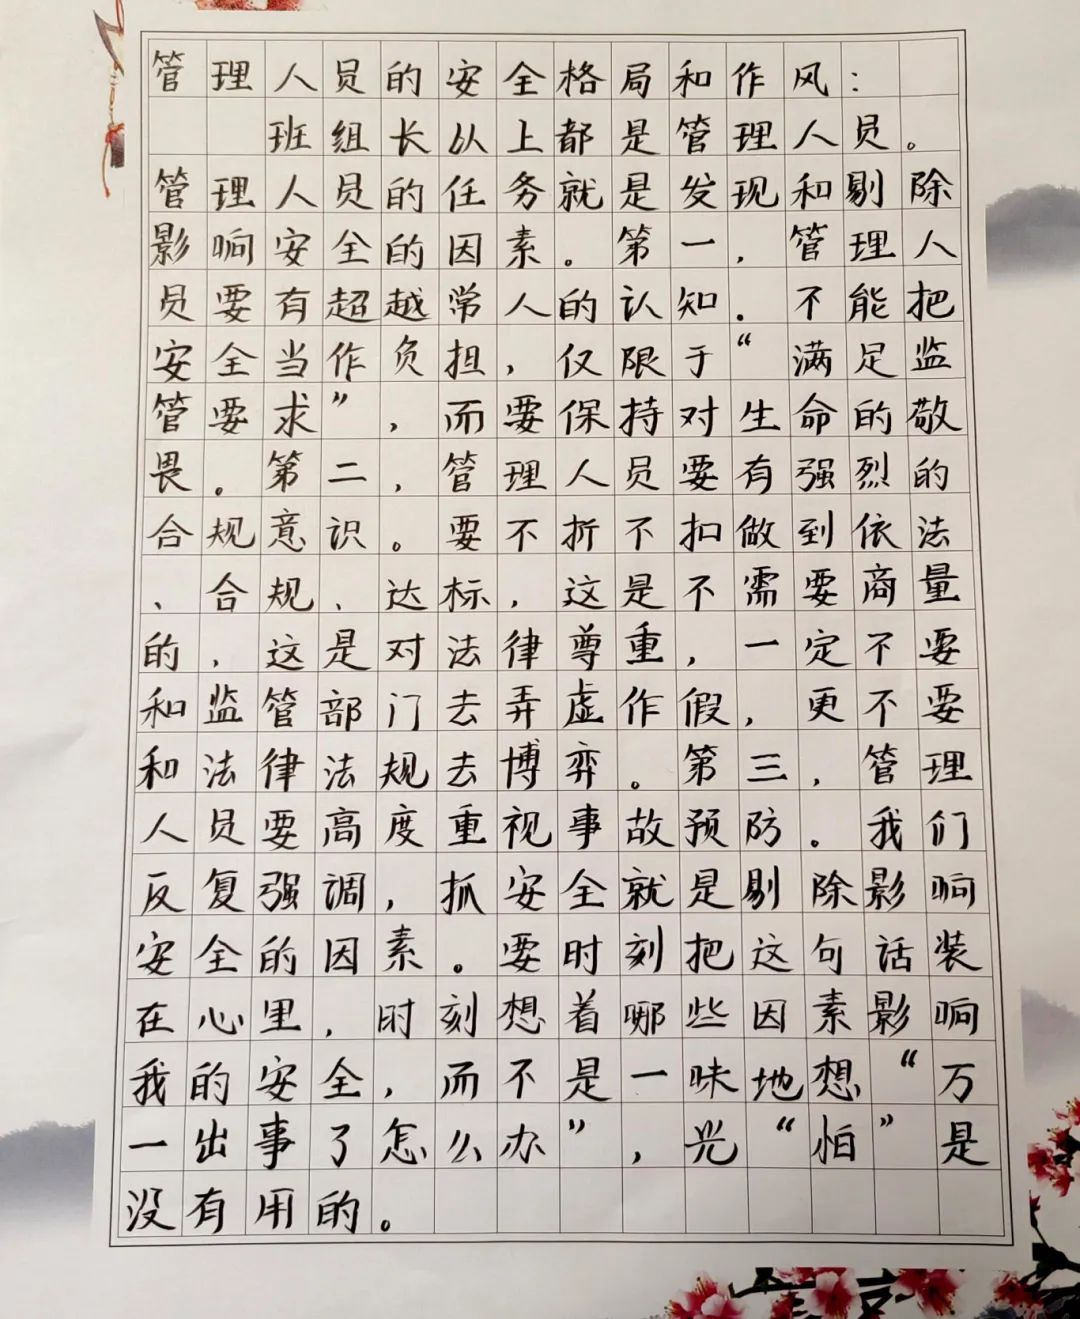 管理人员的安全格局和作风：
班组长从上都是管理人员。
管理人员的任务就是发现和剔除
影响安全的因素。第一，管理人
员要有超越常人的认知．不能把
安全当作负担，仅限于“满足监
管要求”，而要保持对生命的敬
畏。第二，管理人员要有强烈的
合规意识。要不折不扣做到依法
、合规、达标，这是不需要商量
的，这是对法律尊重，一定不要
和监管部门去弄虚作假，更不要
和法律法规去博弈。第三，管理
人员要高度重视事故预防。我们
反复强调，抓安全就是剔除影响
安全的因素。要时刻把这句话装
在心里，时刻想着哪些因素影响
我的安全，而不是一味地想“万
一出事了怎么办”，光“怕”是
没有用的。